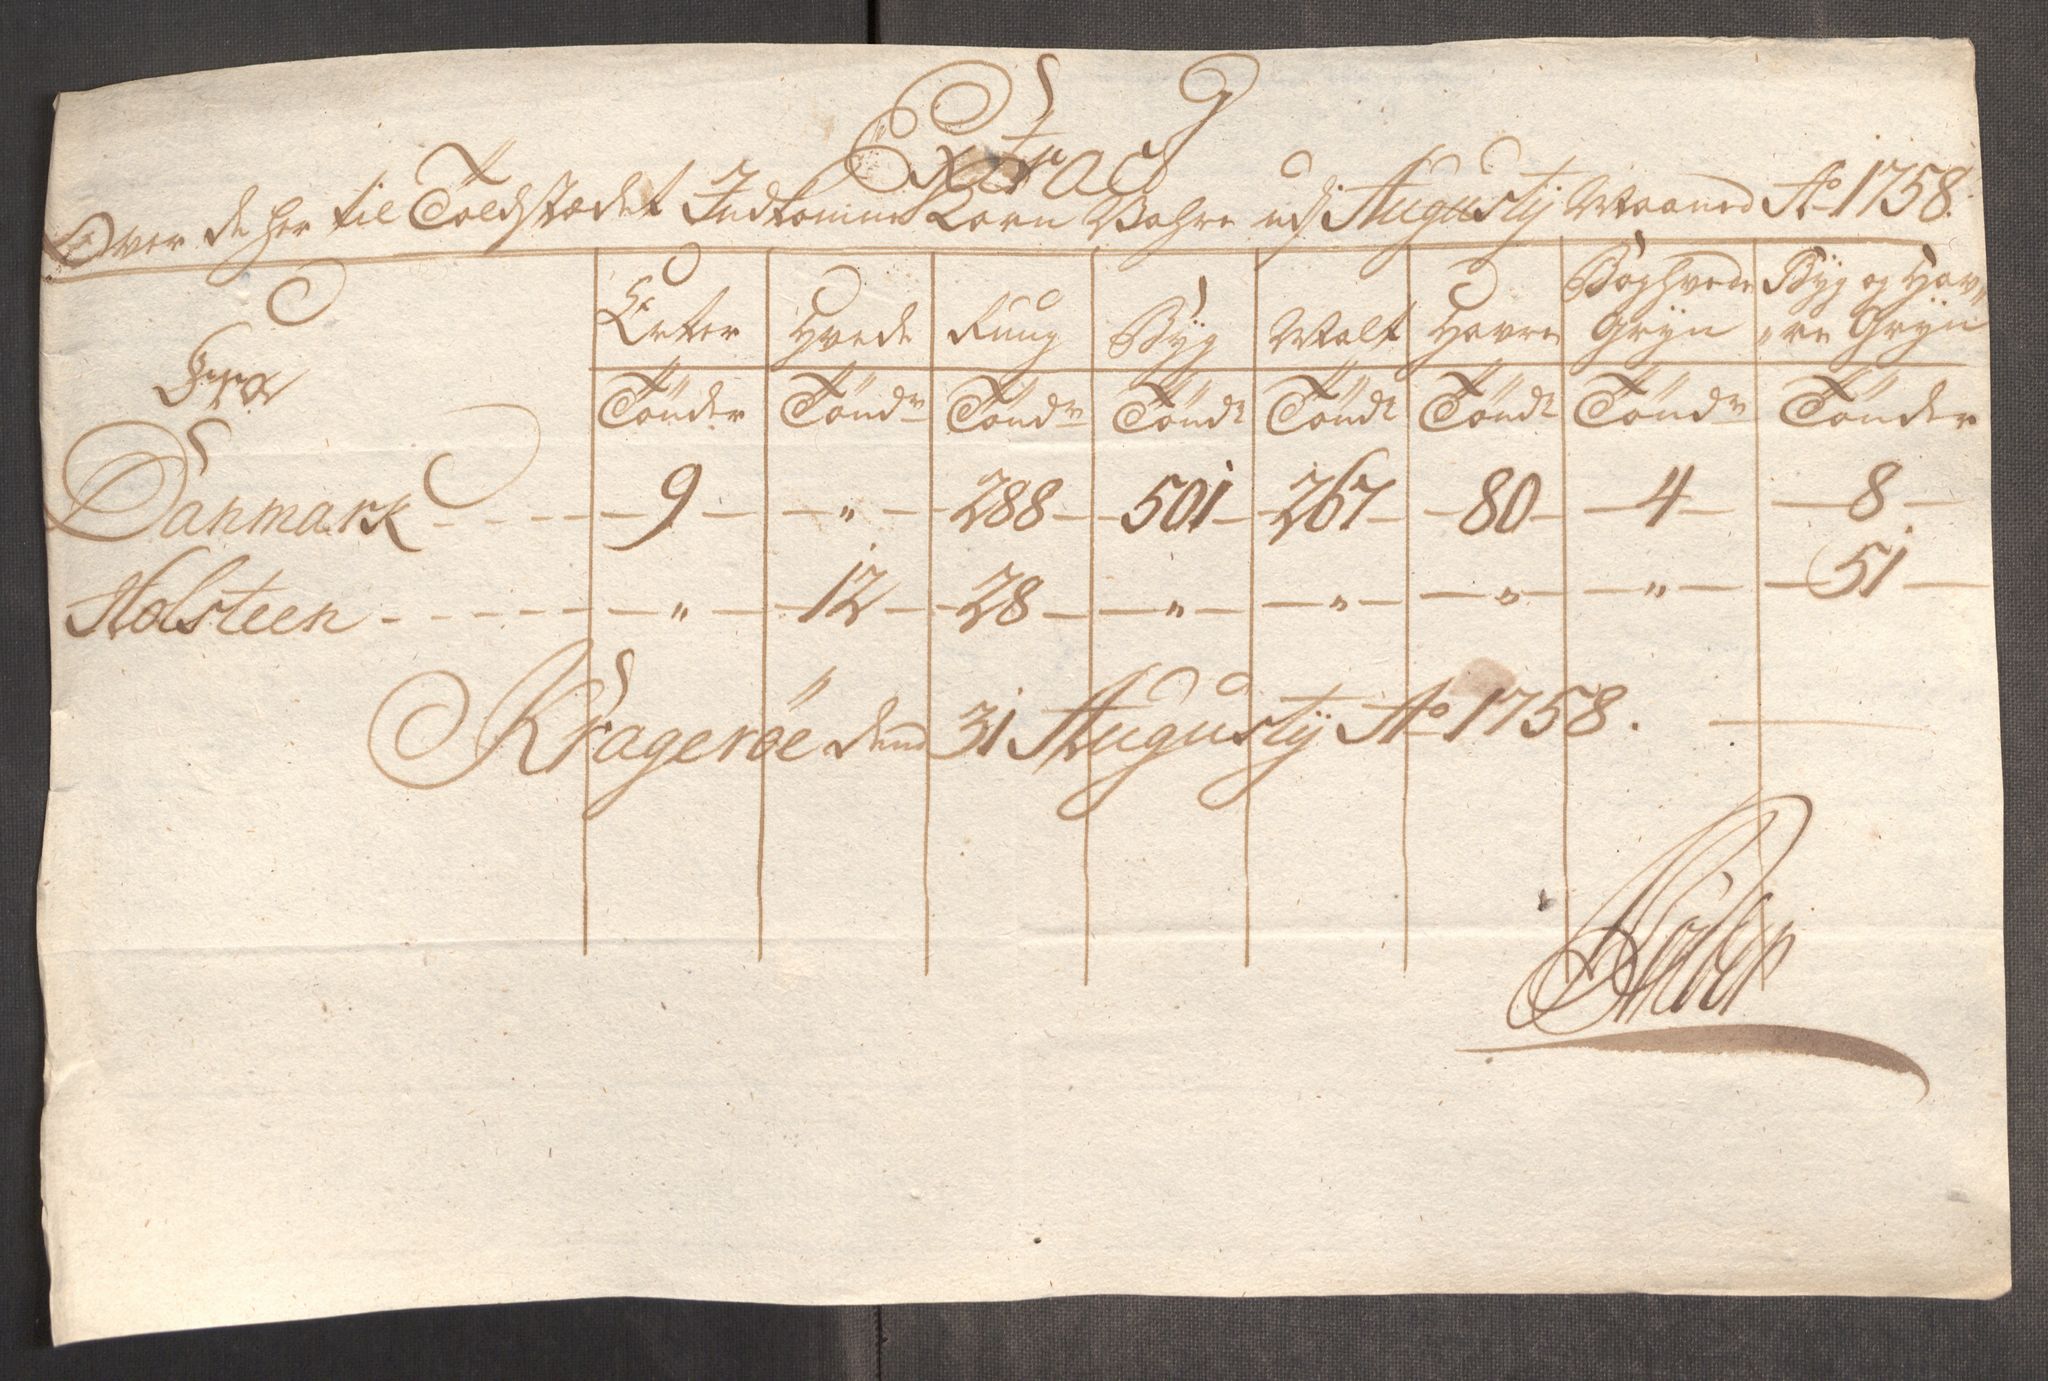 Extract
Over de her til Toldstædet Indkomne Korn Vahre udj Augustij Maaned Ao 1758.
Fra
Erter Hvede Ruug Byg Malt Havre Boghvede Gryn Byg og Hav„ „re Gryn
Tönder Töndr Töndr Tönd: Tönd: Tönd: Töndr Tönder
Danmark - - - - 9 " 288 501 267 80 4 8
Holsteen - - - - " 12 28 " " " " 51
Krageröe dend 31 Augustij Ao 1758.